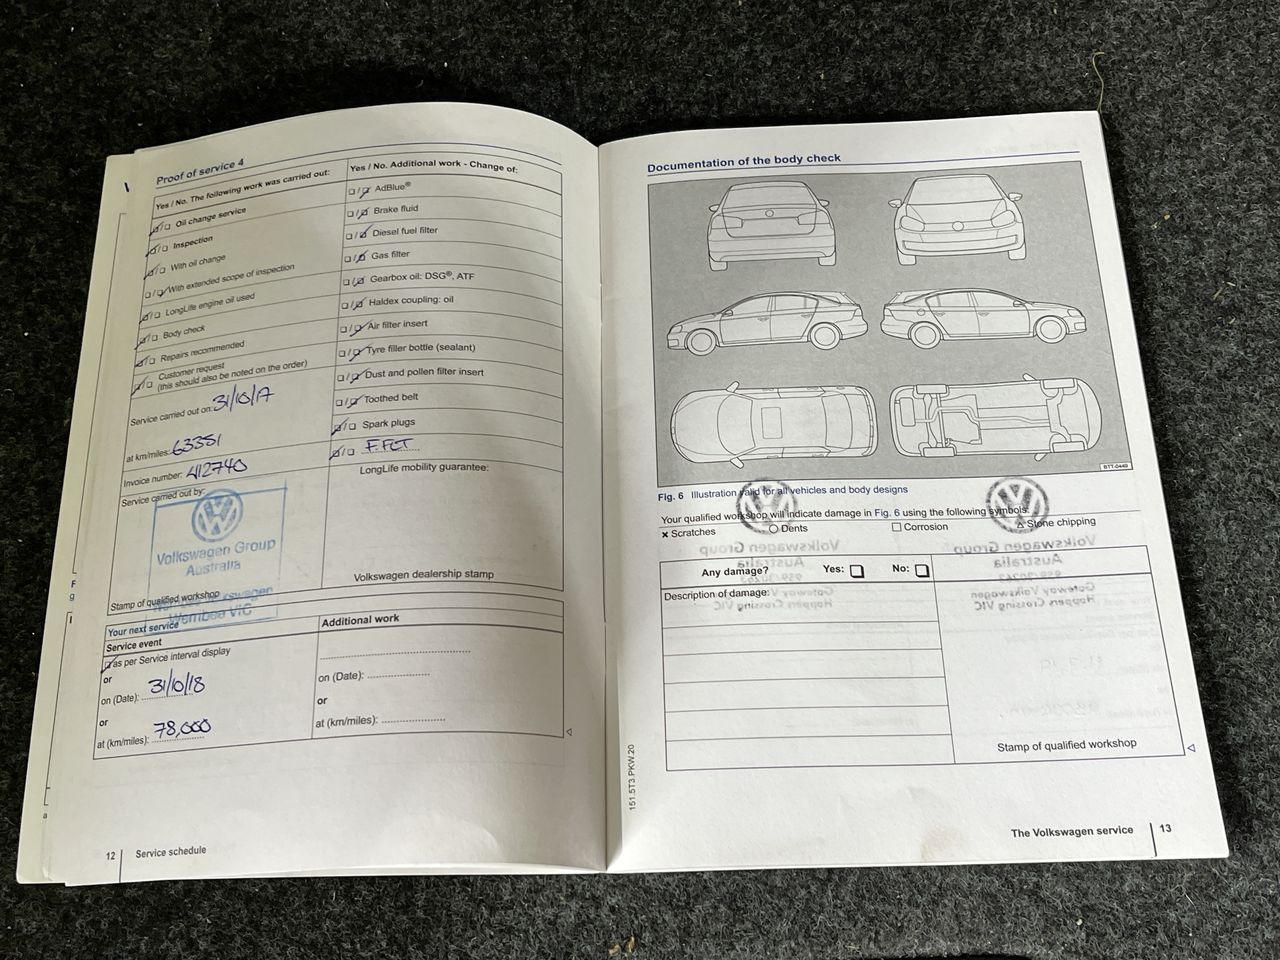 Proof of service 4
Yes / No. The following work was carried out:
Oil change service
Inspection
With oil change
With extended scope of inspection
LongLife engine oil used
Body check
Repairs recommended
Customer request
(this should also be noted on the order)
Service carried out on: 31/10/17
at km/miles: 63351
Invoice number: 412740
Service carried out by:
Volkswagen Group
Australia
Stamp of qualified workshop
Werribee VIC
Yes / No. Additional work - Change of:
AdBlue®
Brake fluid
Diesel fuel filter
Gas filter
Gearbox oil: DSG®, ATF
Haldex coupling: oil
Air filter insert
Tyre filler bottle (sealant)
Dust and pollen filter insert
Toothed belt
Spark plugs
LongLife mobility guarantee:
Volkswagen dealership stamp
Your next service
Service event
as per Service interval display
or
on (Date): 31/10/18
or
at (km/miles): 78,000
Additional work
on (Date):
or
at (km/miles):
12 Service schedule
Documentation of the body check
BTT-0449
Fig. 6 Illustration valid for all vehicles and body designs
Your qualified workshop will indicate damage in Fig. 6 using the following symbols:
Scratches Dents Corrosion Stone chipping
Any damage? Yes: No:
Description of damage:
Stamp of qualified workshop
151.5T3.PKW.20
The Volkswagen service 13